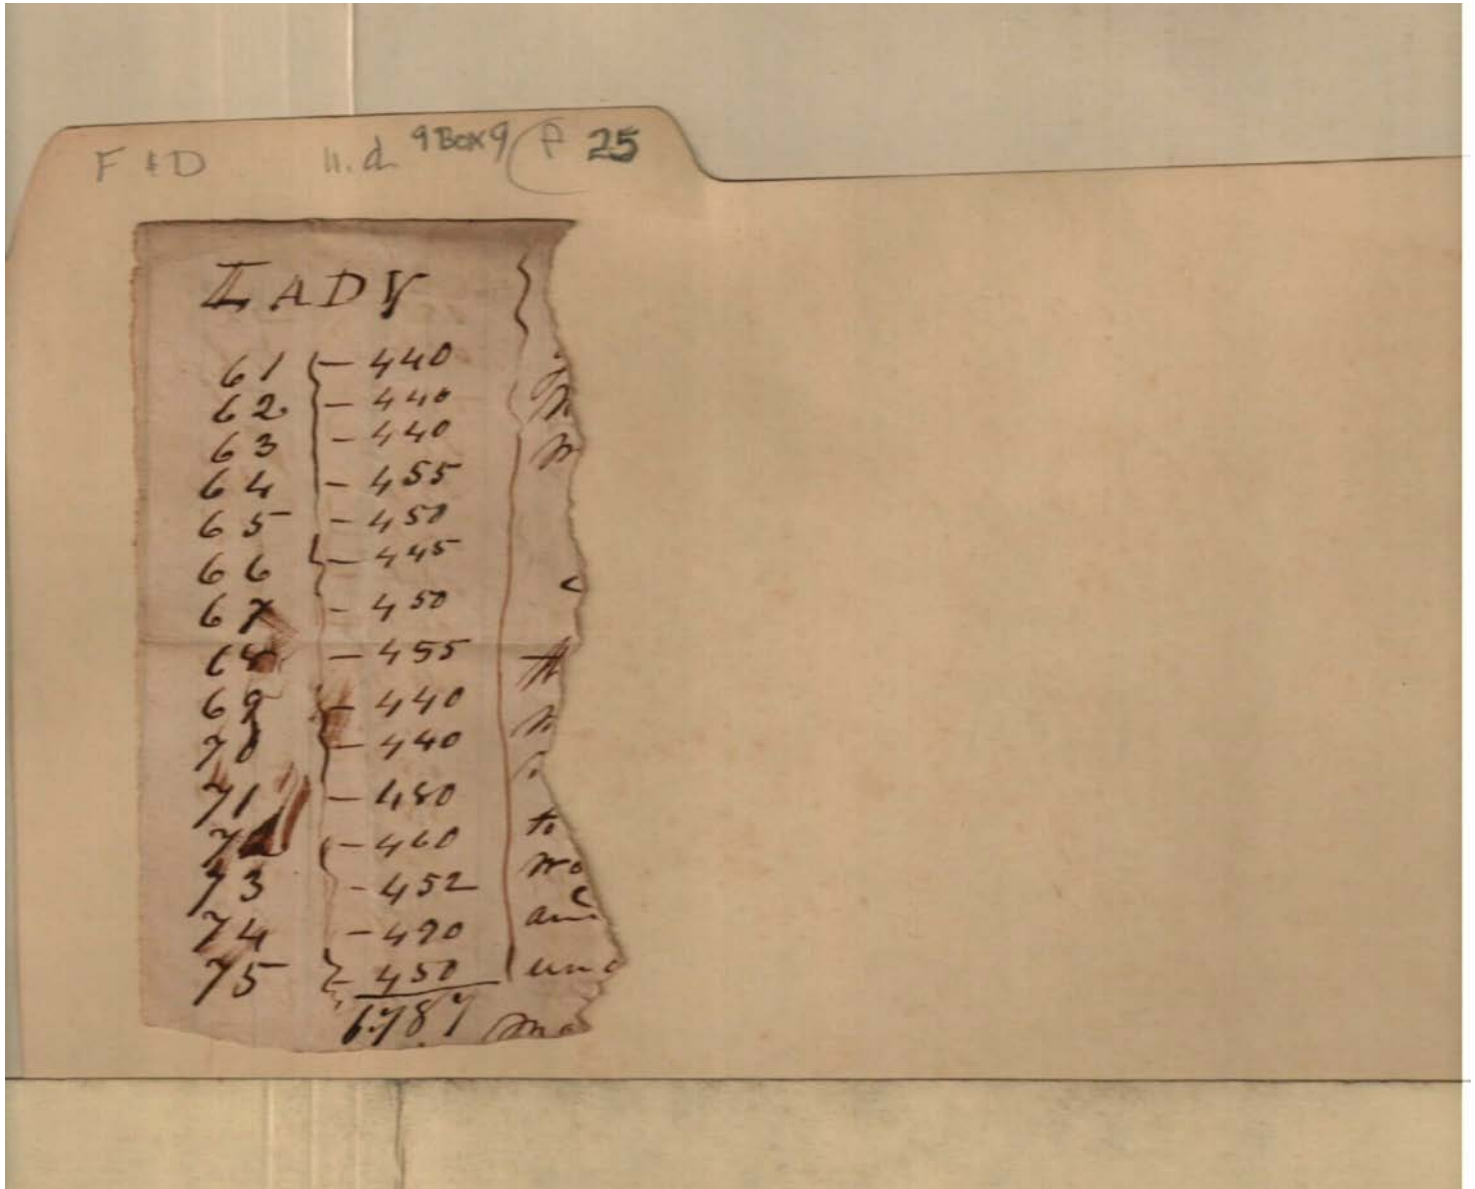 F & D n.d. 9 Box 9 F 25
LADY
61 - 440
62 - 440
63 - 440
64 - 455
65 - 450
66 - 445
67 - 450
68 - 455
69 - 440
70 - 440
71 - 480
72 - 460 to
73 - 452
74 - 490
75 - 450
6787